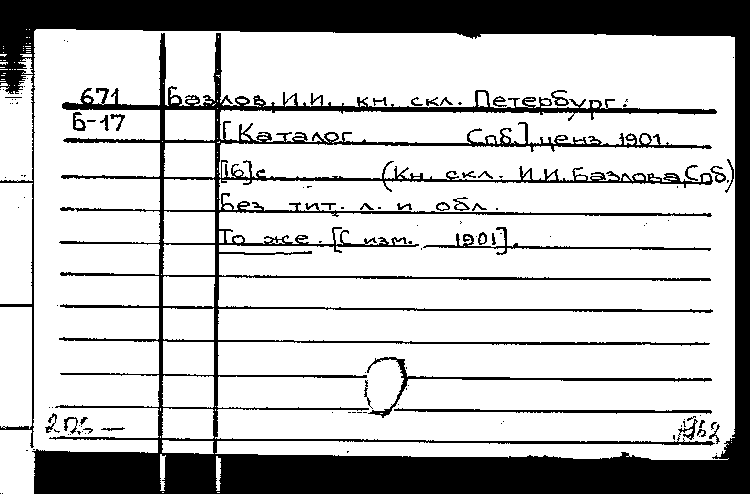 671 Базлов, И.И., кн. скл. Петербург.
Б-17 [Каталог. Спб.], ценз. 1901.
[16]с. (Кн. скл. И.И. Базлова, Спб)
Без тит. л. и обл.
То же. [С изм. 1901].